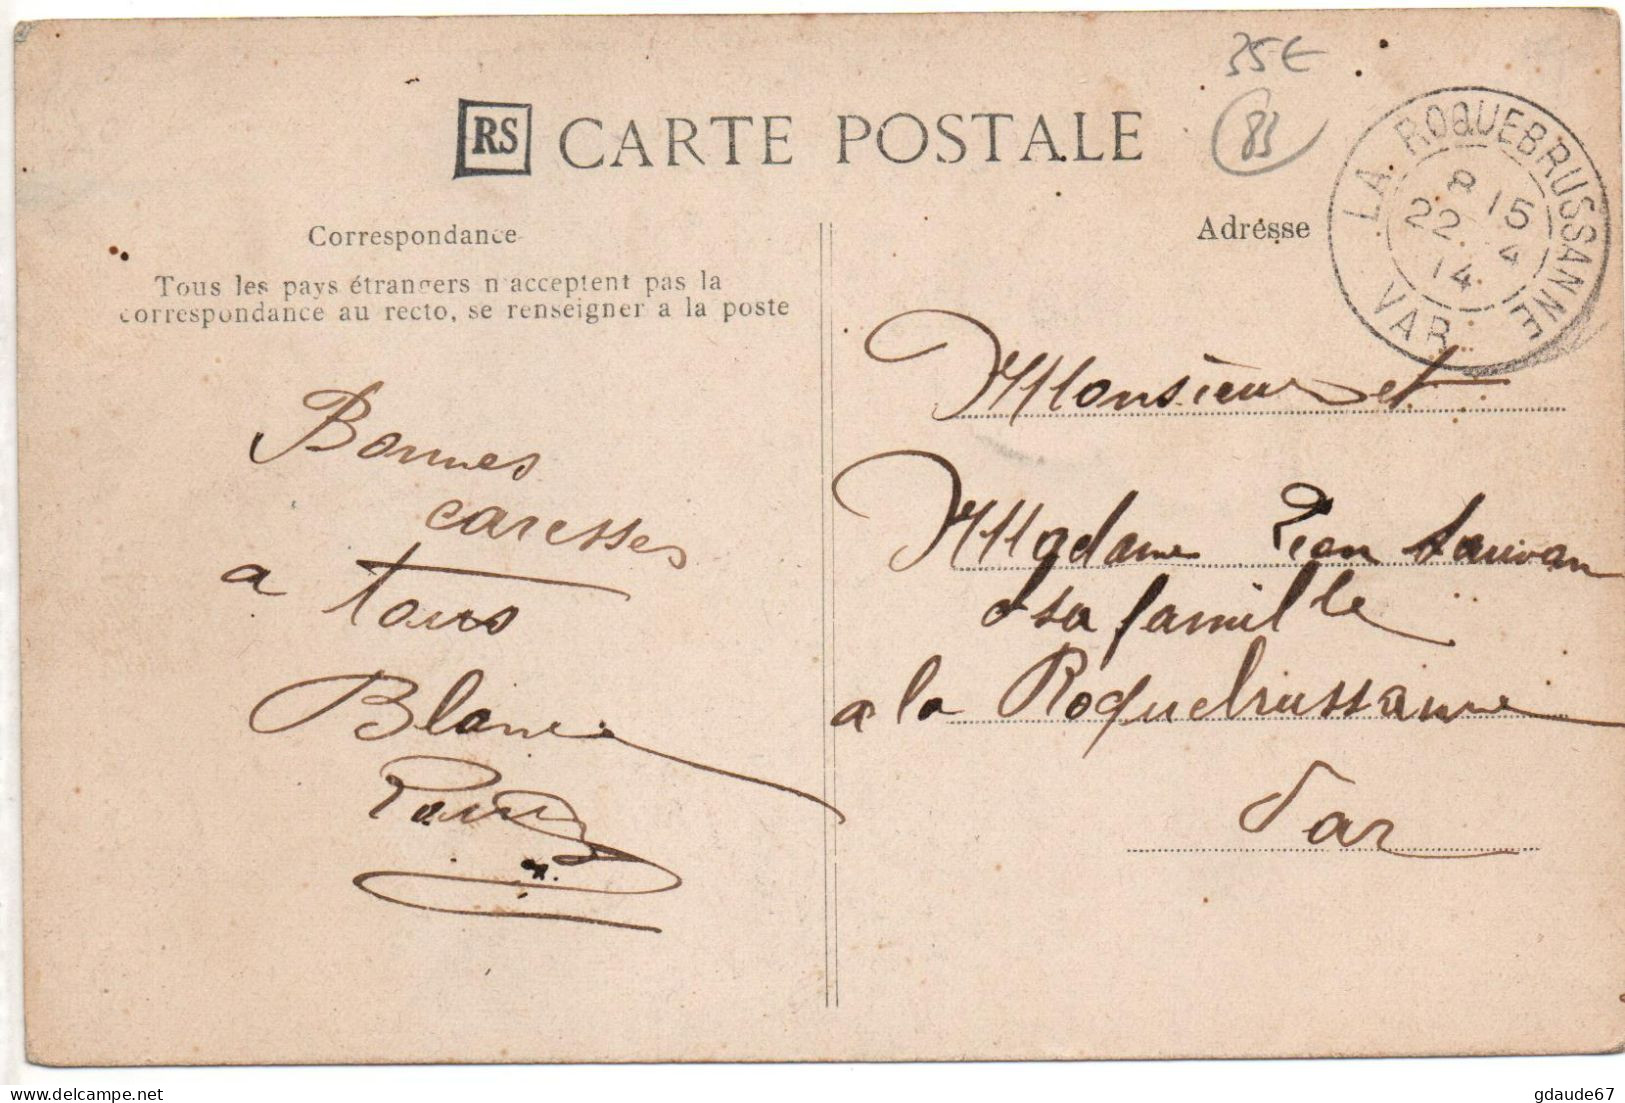 35€
83
RS CARTE POSTALE
LA ROQUEBRUSSANNE
8 15
22 4
14
VAR
Correspondance
Tous les pays étrangers n'acceptent pas la
correspondance au recto, se renseigner a la poste
Bonnes
caresses
a tous
Blanche
Adresse
Monsieur et
Madame Léon Sauvan
& sa famille
a la Roquebrussanne
Var
gdaude67